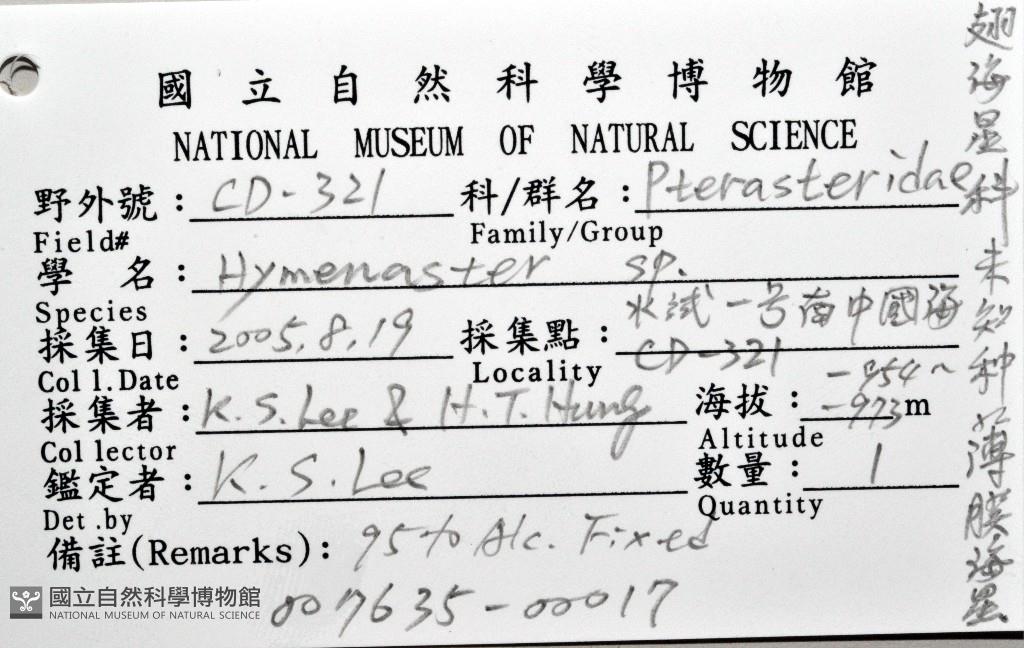 國立自然科學博物館
NATIONAL MUSEUM OF NATURAL SCIENCE
野外號：CD-321 科/群名：Pterasteridae
Field# Family/Group
學名：Hymenaster sp.
Species
採集日：2005.8.19 採集點：水試一号南中國海
CD-321
Coll.Date Locality
採集者：K.S.Lee & H.T.Hung 海拔：-954~-973m
Collector Altitude
鑑定者：K.S.Lee 數量：1
Det.by Quantity
備註(Remarks)：95% Alc. Fixed
007635-00017
翅海星科未知种 薄膜海星
國立自然科學博物館
NATIONAL MUSEUM OF NATURAL SCIENCE